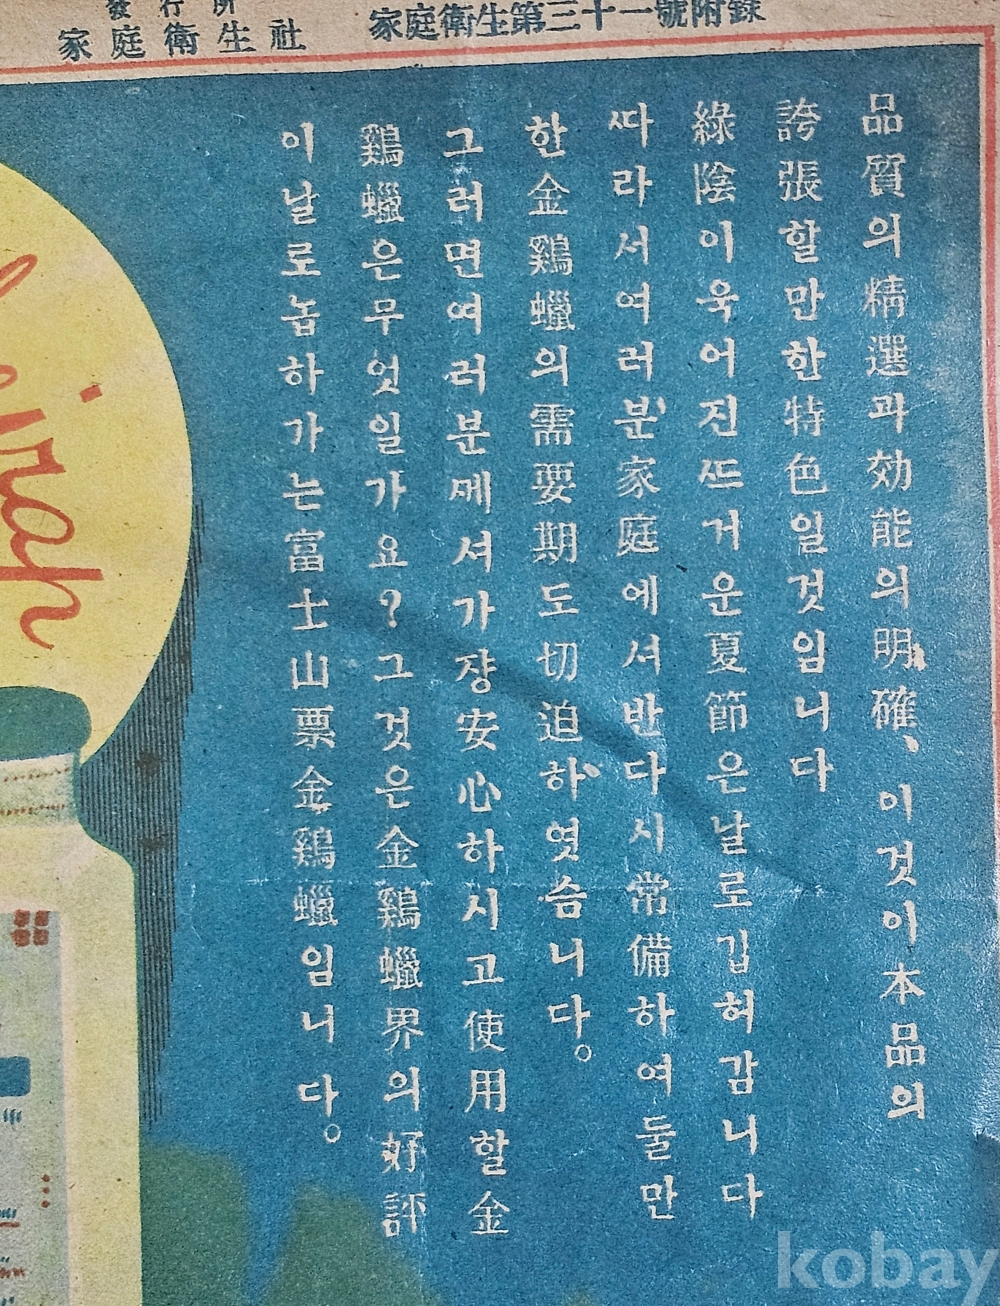 發行所
家庭衛生社
家庭衛生第三十一號附錄
品質의精選과効能의明確、이것이本品의
誇張할만한特色일것임니다
綠陰이욱어진ᄯᅳ거운夏節은날로깁허감니다
ᄯᅡ라서여러분家庭에셔반다시常備하여둘만
한金鷄蠟의需要期도切迫하엿슴니다。
그러면여러분ᄭᅦ셔가쟝安心하시고使用할金
鷄蠟은무엇일가요?그것은金鷄蠟界의好評
이날로놉하가는富士山票金鷄蠟임니다。
kobay